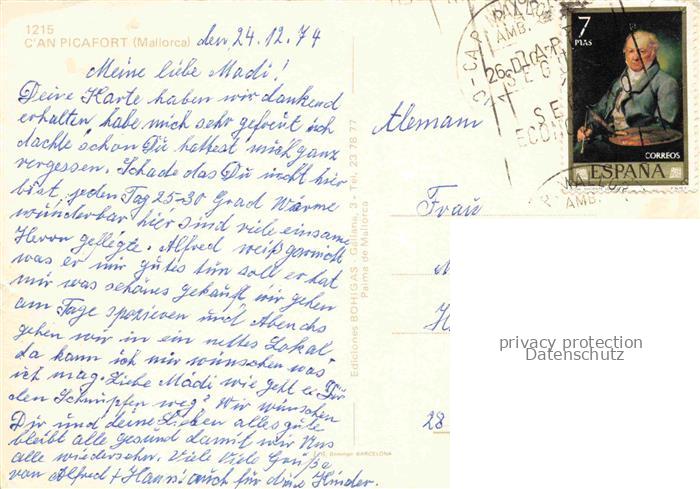 1215
C'AN PICAFORT (Mallorca)
den 24.12.74
Meine liebe Madi!
Deine Karte haben wir dankend
erhalten habe mich sehr gefreut ich
dachte schon Du hattest mich ganz
vergessen. Schade das Du nicht hier
bist jeden Tag 25-30 Grad Wärme
wunderbar hier sind viele einsame
Herrn Alfred weiß garnicht
was er mir gutes tun soll er hat
mir was schönes gekauft wir gehen
am Tage spazieren und Abends
gehen wir in ein nettes Lokal
da kann ich mir wünschen was
ich mag. Liebe Mädi wie geht es Dir
den Schnupfen weg? Wir wünschen
Dir und deine Lieben alles gute
bleibt alle gesund damit wir Uns
alle wiedersehn. Viele Viele Grüße
von Alfred + Hanni auch für deine Kinder.
Ediciones BOHIGAS - Gallana, 3 - Tel. 23 78 77
Palma de Mallorca
Domingo BARCELONA
Alemani
Frau
M
H
28
7
PTAS
CORREOS
ESPAÑA
AMB.
26 DIC
AMB.
privacy protection
Datenschutz